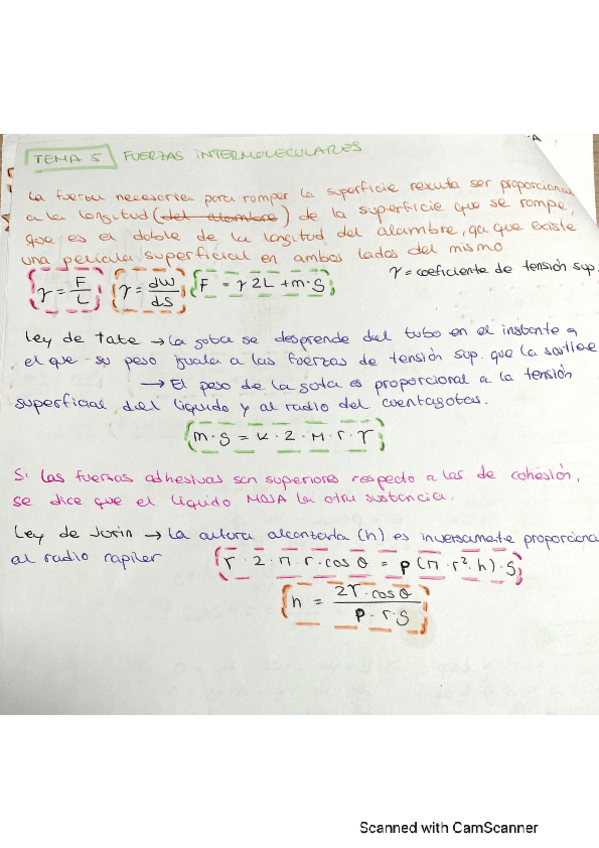 TEMA 5 FUERZAS INTERMOLECULARES
La fuerza necesaria para romper la superficie resulta ser proporcional
a la longitud (del alambre) de la superficie que se rompe,
que es el doble de la longitud del alambre, ya que existe
una película superficial en ambos lados del mismo
γ = coeficiente de tensión sup.
γ = F/L γ = dW/dS F = γ 2L + m·g
Ley de Tate → La gota se desprende del tubo en el instante en
el que su peso iguala a las fuerzas de tensión sup. que la sostiene
→ El peso de la gota es proporcional a la tensión
superficial del líquido y al radio del cuentagotas.
m·g = K·2·π·r·γ
Si las fuerzas adhesivas son superiores respecto a las de cohesión,
se dice que el líquido MOJA la otra sustancia.
Ley de Jurin → La altura alcanzada (h) es inversamente proporciona
al radio capilar
γ·2·π·r·cos θ = ρ(π·r²·h)·g
h = 2γ·cosθ / ρ·r·g
Scanned with CamScanner